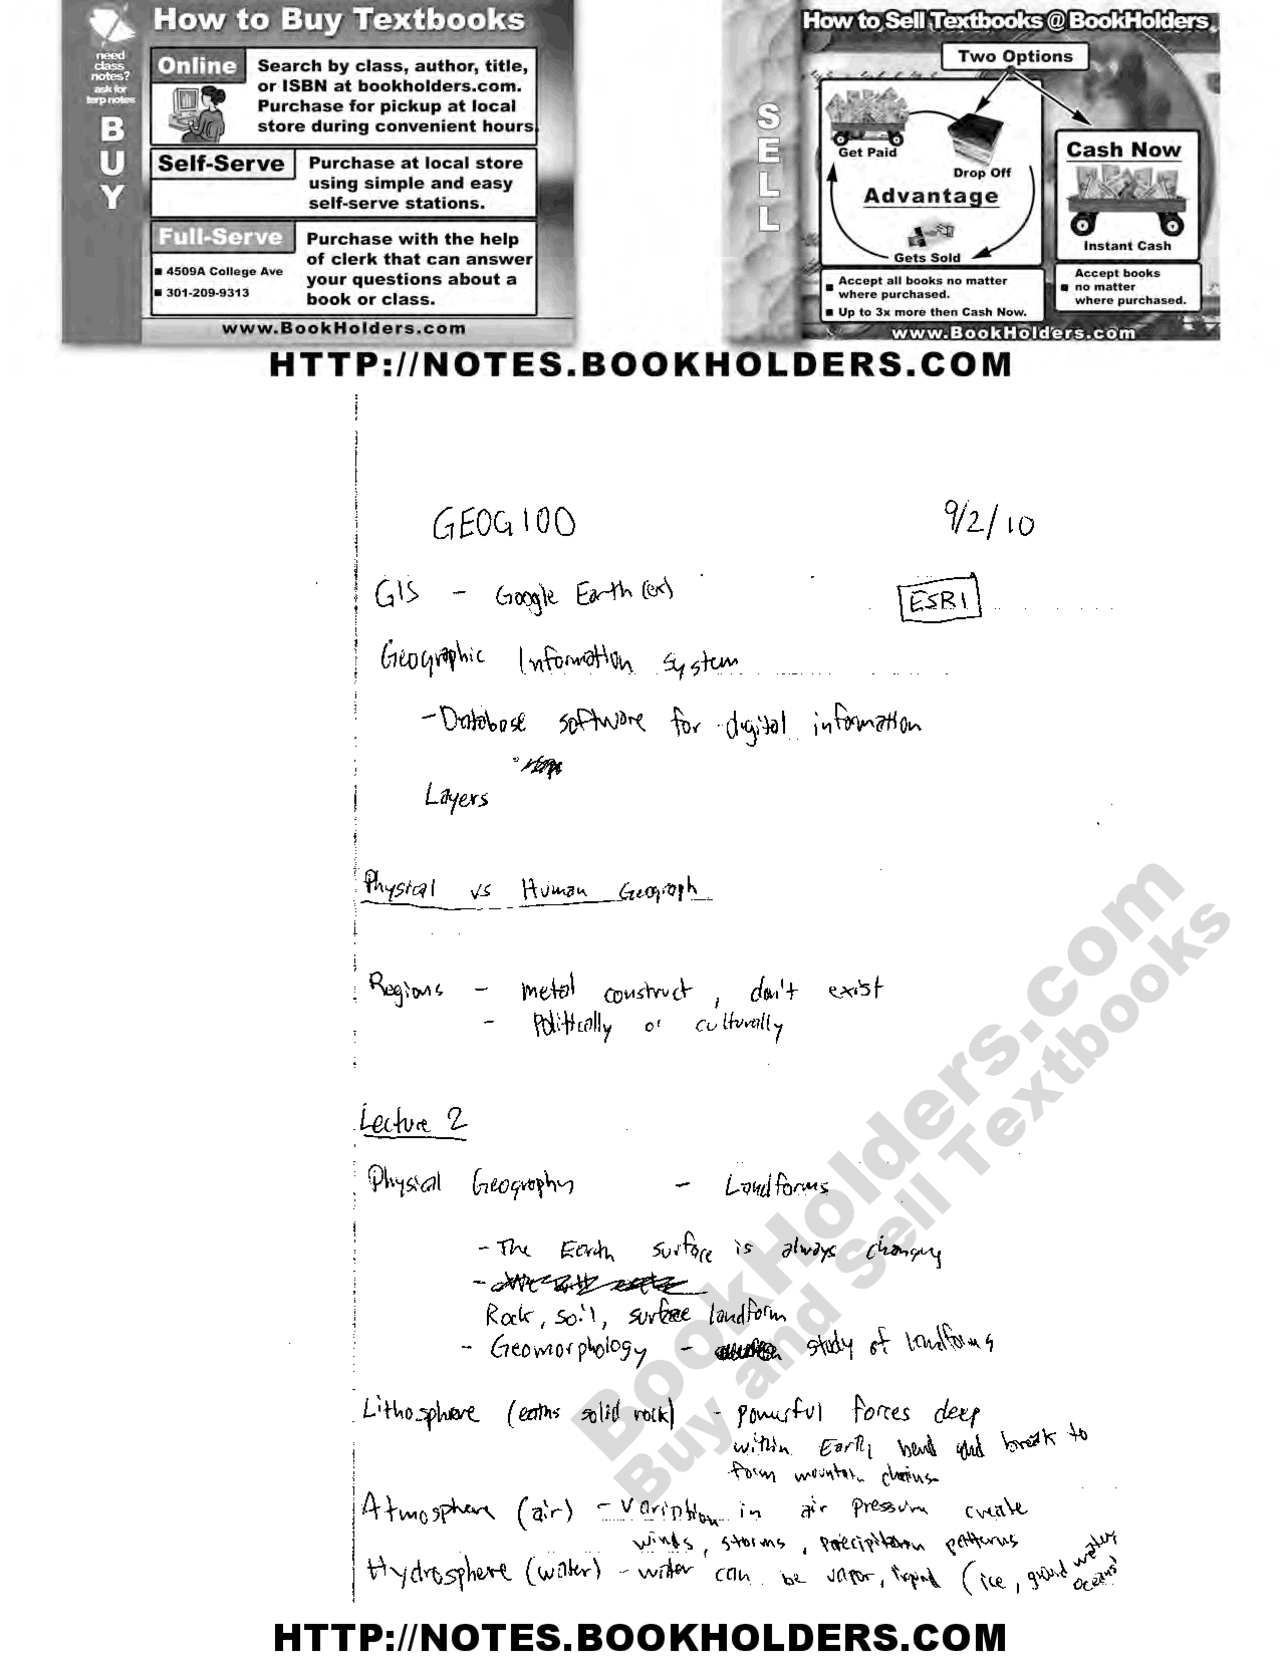 How to Buy Textbooks
need
class
notes?
ask for
terp notes
BUY
Online
Search by class, author, title,
or ISBN at bookholders.com.
Purchase for pickup at local
store during convenient hours.
Self-Serve
Purchase at local store
using simple and easy
self-serve stations.
Full-Serve
■ 4509A College Ave
■ 301-209-9313
Purchase with the help
of clerk that can answer
your questions about a
book or class.
www.BookHolders.com
How to Sell Textbooks @ BookHolders
SELL
Two Options
Get Paid
Drop Off
Advantage
Gets Sold
■ Accept all books no matter
where purchased.
■ Up to 3x more then Cash Now.
Cash Now
Instant Cash
■ Accept books
no matter
where purchased.
www.BookHolders.com
HTTP://NOTES.BOOKHOLDERS.COM
GEOG100 9/2/10
GIS - Google Earth (ex) ESRI
Geographic Information System
- Database software for digital information
Layers
Physical vs Human Geograph
Regions - metal construct, don't exist
- Politically or culturally
Lecture 2
Physical Geography - Landforms
- The Earth surface is always changing
-
Rock, soil, surface landform
- Geomorphology - study of landforms
Lithosphere (earths solid rock) - powerful forces deep
within Earth, bend and break to
form mountain chains
Atmosphere (air) - variation in air pressure create
winds, storms, precipitation patterns
Hydrosphere (water) - water can be vapor, liquid (ice, ground water,
oceans)
BookHolders.com
Buy and Sell Textbooks
HTTP://NOTES.BOOKHOLDERS.COM